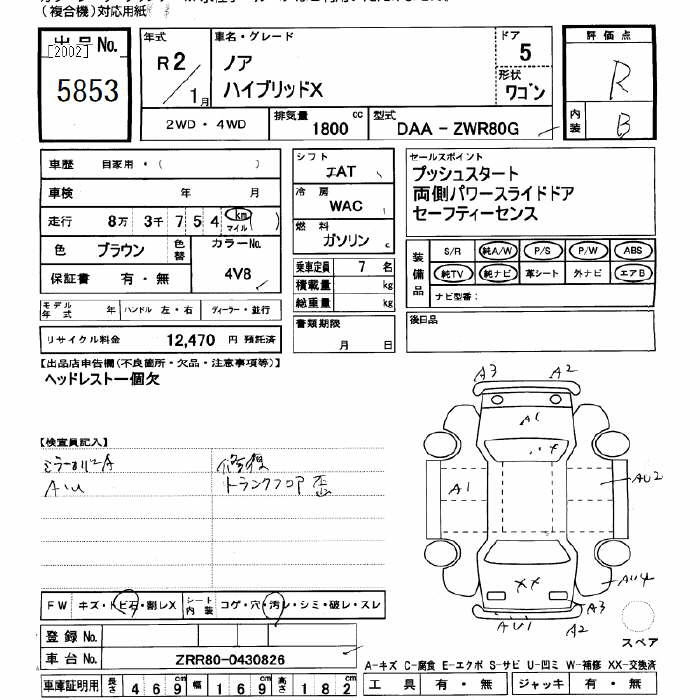 （複合機）対応用紙
出品No.
[2002]
5853
年式
R2/1月
車名・グレード
ノア
ハイブリッドX
ドア
5
形状
ワゴン
評価点
R
内装
B
2WD・4WD
排気量
1800 cc
型式
DAA - ZWR80G
車歴 自家用・( )
車検 年 月
走行 8万 3千 7 5 4 km マイル ( )
色 ブラウン 色替 カラーNo. 4V8
保証書 有・無
モデル年式 年 ハンドル 左・右 ディーラー・並行
リサイクル料金 12,470 円 預託済
シフト
IAT
冷房
WAC
燃料
ガソリン
乗車定員 7 名
積載量 kg
総重量 kg
書類期限
月 日
セールスポイント
プッシュスタート
両側パワースライドドア
セーフティーセンス
装備品
S/R 純A/W P/S P/W ABS
純TV 純ナビ 革シート 外ナビ エアB
ナビ型番：
後日品
【出品店申告欄(不良箇所・欠品・注意事項等)】
ヘッドレスト一個欠
【検査員記入】
ミラーカバーA
AU
修復
トランクフロア歪
A3 A2
A1
A1
AU2
AU4
XX
A3
AU1 A2
スペア
FW キズ・トビ石・割レX シート内装 コゲ・穴・汚レ・シミ・破レ・スレ
登録No.
車台No. ZRR80-0430826
車庫証明用 長さ 4 6 9 cm 幅 1 6 9 cm 高さ 1 8 2 cm
A-キズ C-腐食 E-エクボ S-サビ U-凹ミ W-補修 XX-交換済
工具 有・無 ジャッキ 有・無